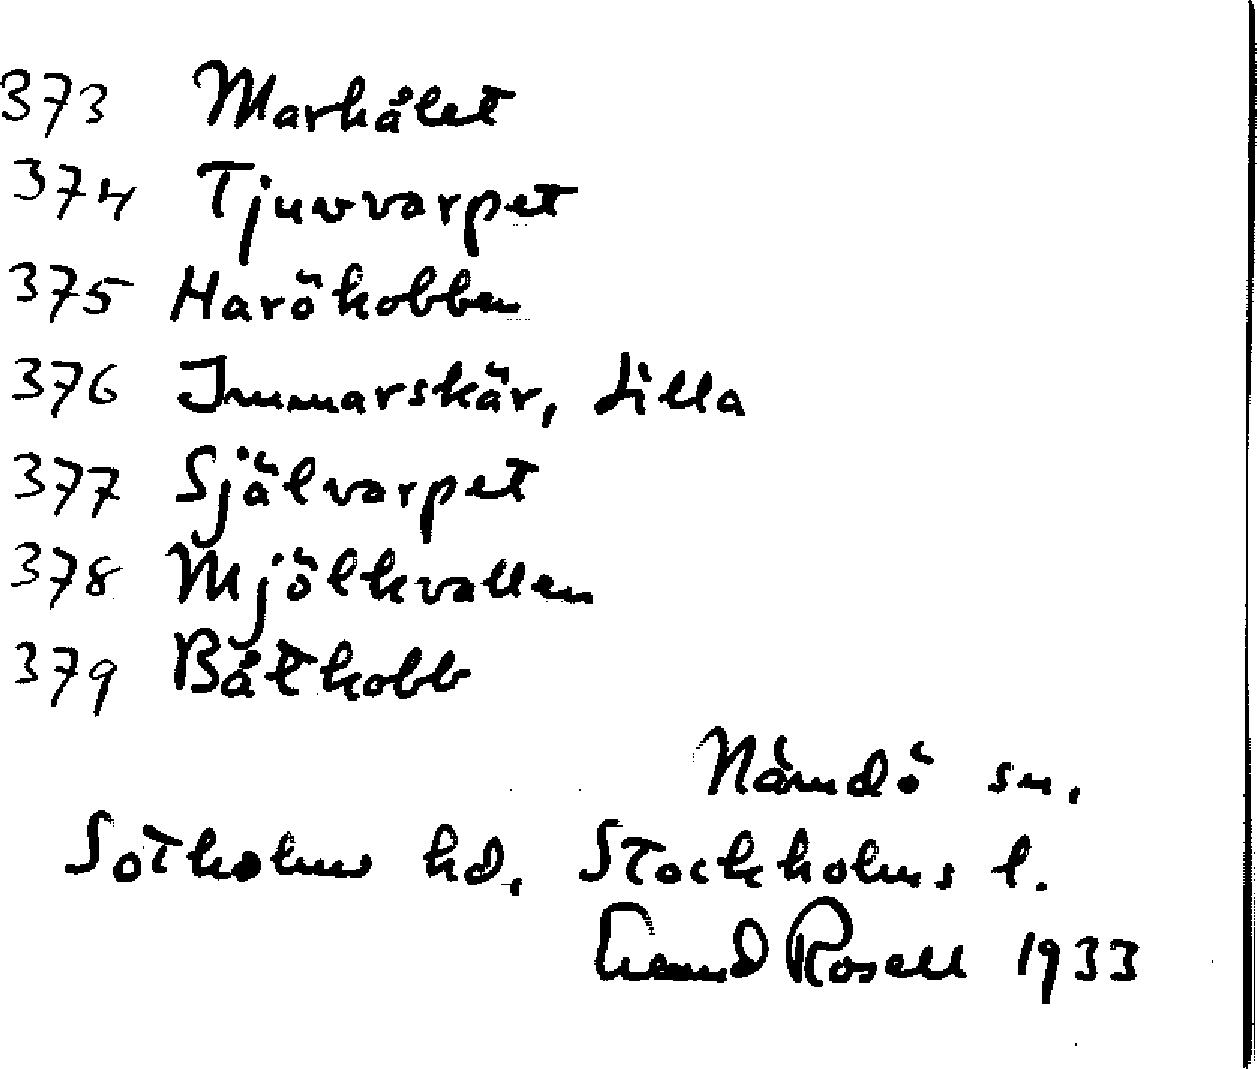 373 Marhålet
374 Tjuvvarpet
375 Harökobben
376 Immarskär, Lilla
377 Självarpet
378 Mjölkvallen
379 Båtkobb
Nämdö sn.
Sotholms hd. Stockholms l.
Rosell 1933